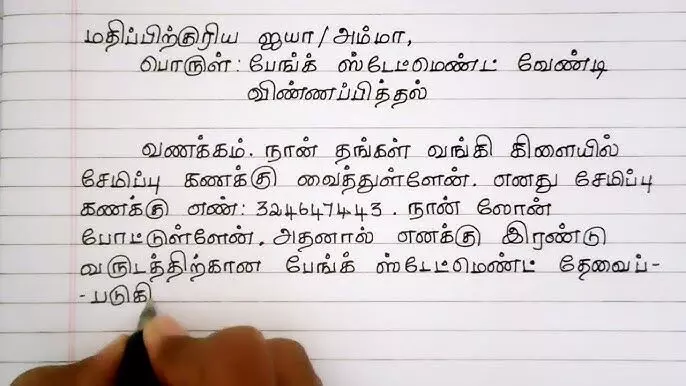 மதிப்பிற்குரிய ஐயா/அம்மா,
பொருள் : பேங்க் ஸ்டேட்மெண்ட் வேண்டி
விண்ணப்பித்தல்
வணக்கம். நான் தங்கள் வங்கி கிளையில்
சேமிப்பு கணக்கு வைத்துள்ளேன். எனது சேமிப்பு
கணக்கு எண்: 324647443. நான் லோன்
போட்டுள்ளேன். அதனால் எனக்கு இரண்டு
வருடத்திற்கான பேங்க் ஸ்டேட்மெண்ட் தேவைப்-
-படுகி